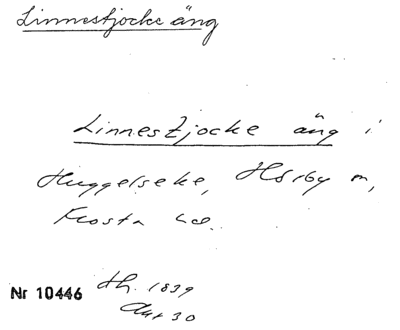 Linnestjocke äng
Linnestjocke äng i
Huggelseke, Hörby sn,
Frosta hd.
Nr 10446 Ah. 1839
Akt 30